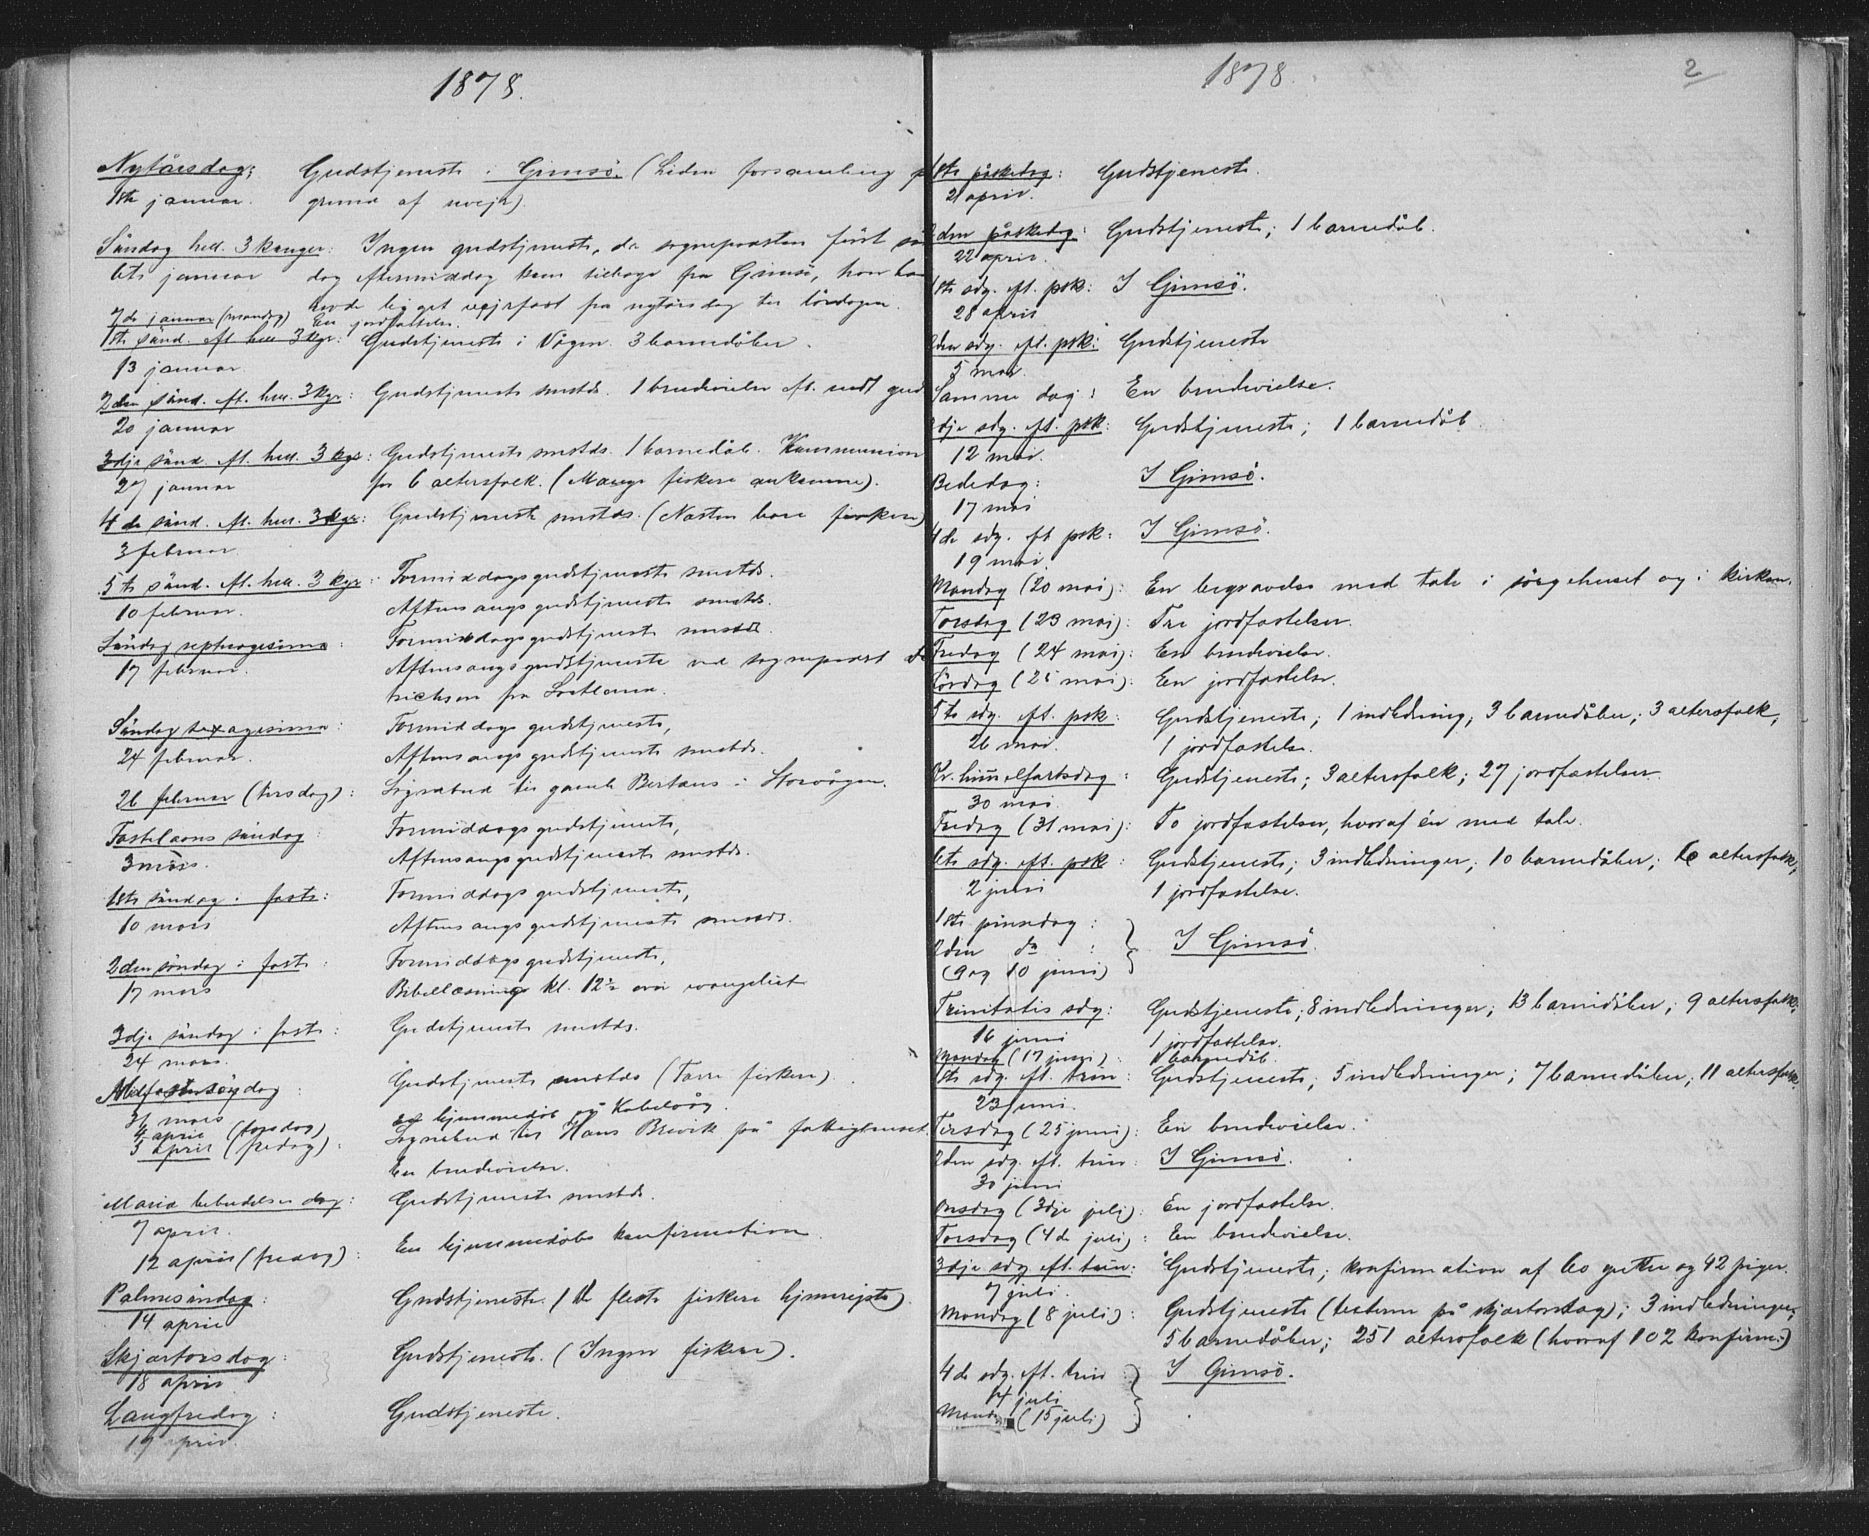 1878.
Nytårsdag: Gudstjeneste i Gimsö. (Liden forsamling p
1ste januar. grund af uvejr).
Söndag hell. 3 konger: Ingen gudstjeneste, da sognepræsten först sön
6te januar dag eftermiddag kom tilbage fra Gimsö, hvor han
havde ligget vejrfast fra nytårsdag til lördagen.
7de januar (mandag) En jordfæstelse.
1ste sönd. eft. hell. 3 kgr: Gudstjeneste i Vågen. 3 barnedåber.
13 januar
2den sönd. eft. hell. 3 kgr: Gudstjeneste smstds. 1 brudevielse eft. endt guds
20 januar
3dje sönd. eft. hell. 3 kgr: Gudstjeneste smstds. 1 barnedåb. Kommunion
27 januar for 6 altersfolk. (Mange fiskere ankomne).
4de sönd. eft. hell. 3 kgr: Gudstjeneste smstds. (Næsten bare fiskere)
3 februar
5te sönd. eft. hell. 3 kgr: Formiddagsgudstjeneste smstds.
10 februar. Aftensangsgudstjeneste smstds.
Söndag septuagesima: Formiddagsgudstjeneste smstds.
17 februar. Aftensangsgudstjeneste ved sognepræst
fra
Söndag sexagesima: Formiddagsgudstjeneste,
24 februar. Aftensangsgudstjeneste smstds.
26 februar (tirsdag): Sognebud til gamle i Storvågen.
Fastelavns söndag Formiddagsgudstjeneste,
3 mars. Aftensangsgudstjeneste smstds.
1ste söndag i faste: Formiddagsgudstjeneste,
10 mars Aftensangsgudstjeneste smstds.
2den söndag i faste: Formiddagsgudstjeneste,
17 mars Bibellæsning kl. 12½ over evangeliet
3dje söndag i faste: Gudstjeneste smstds.
24 mars.
Midfastesöndag Gudstjeneste smstds (Færre fiskere)
31 mars
4 april (torsdag) hjemmedåb på Kabelvåg.
5 april (fredag): Sognebud til Hans Brevik på fattighuset.
En brudevielse.
Maria bebudelses dag: Gudstjeneste smstds.
7 april.
12 april (fredag): En hjemmedöbs konfirmation.
Palmesöndag: Gudstjeneste. (De fleste fiskere hjemrejste).
14 april
Skjærtorsdag: Gudstjeneste. (Ingen fiskere).
18 april
Langfredag: Gudstjeneste.
19 april.
1878. 2
1ste påskedag: Gudstjeneste.
21 april.
2den påskedag: Gudstjeneste; 1 barnedåb.
22 april.
1ste sdg. eft. psk: I Gimsö.
28 april
2den sdg. eft. psk: Gudstjeneste
5 mai
Samme dag: En brudevielse.
3dje sdg. eft. psk: Gudstjeneste; 1 barnedåb
12 mai.
Bededag: I Gimsö.
17 mai
4de sdg. eft psk: I Gimsö.
19 mai.
Mandag (20 mai): En begravelse med tale i sörgehuset og i kirken.
Torsdag (23 mai): Tre jordfæstelser.
Fredag (24 mai): En brudevielse.
Lördag (25 mai): En jordfæstelse.
5te sdg. eft. psk: Gudstjeneste; 1 indledning; 3 barnedåber; 3 altersfolk,
26 mai. 1 jordfæstelse.
Kr. himmelfartsdag: Gudstjeneste; 3 altersfolk; 27 jordfæstelser.
30 mai.
Fredag (31 mai): To jordfæstelser, hvoraf én med tale.
6te sdg. eft. psk: Gudstjeneste; 3 indledninger; 10 barnedåber; altersfolk,
2 juni 1 jordfæstelse.
1ste pinsedag:
2den do : I Gimsö.
(9 og 10 juni)
Trinitatis sdg: Gudstjeneste; 8 indledninger; 13 barnedåber; 9 altersfolk.
16 juni 1 jordfæstelse.
Mandag (17 juni): 1 barnedåb.
1ste sdg. eft. trin: Gudstjeneste; 5 indledninger; 7 barnedåber; 11 altersfolk.
23 juni.
Tirsdag (25 juni): En brudevielse.
2den sdg. eft. trin: I Gimsö.
30 juni
Onsdag (3dje juli): En jordfæstelse.
Torsdag (4de juli): En brudevielse.
3dje sdg eft. trin: Gudstjeneste; konfirmation af 60 gutter og 42 piger.
7 juli.
Mandag (8 juli): Gudstjeneste (texterne på skjærtorsdag); 3 indledninger;
5 barnedåber; 251 altersfolk (hvoraf 102 konfirm.)
4de sdg. eft. trin: I Gimsö.
14 juli
Mandag (15 juli)